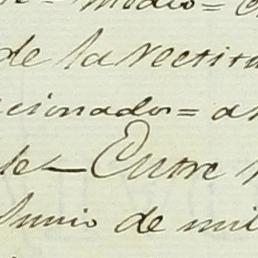 modo =
de la rectitu
cionado = a
de — Entre
Junio de mil